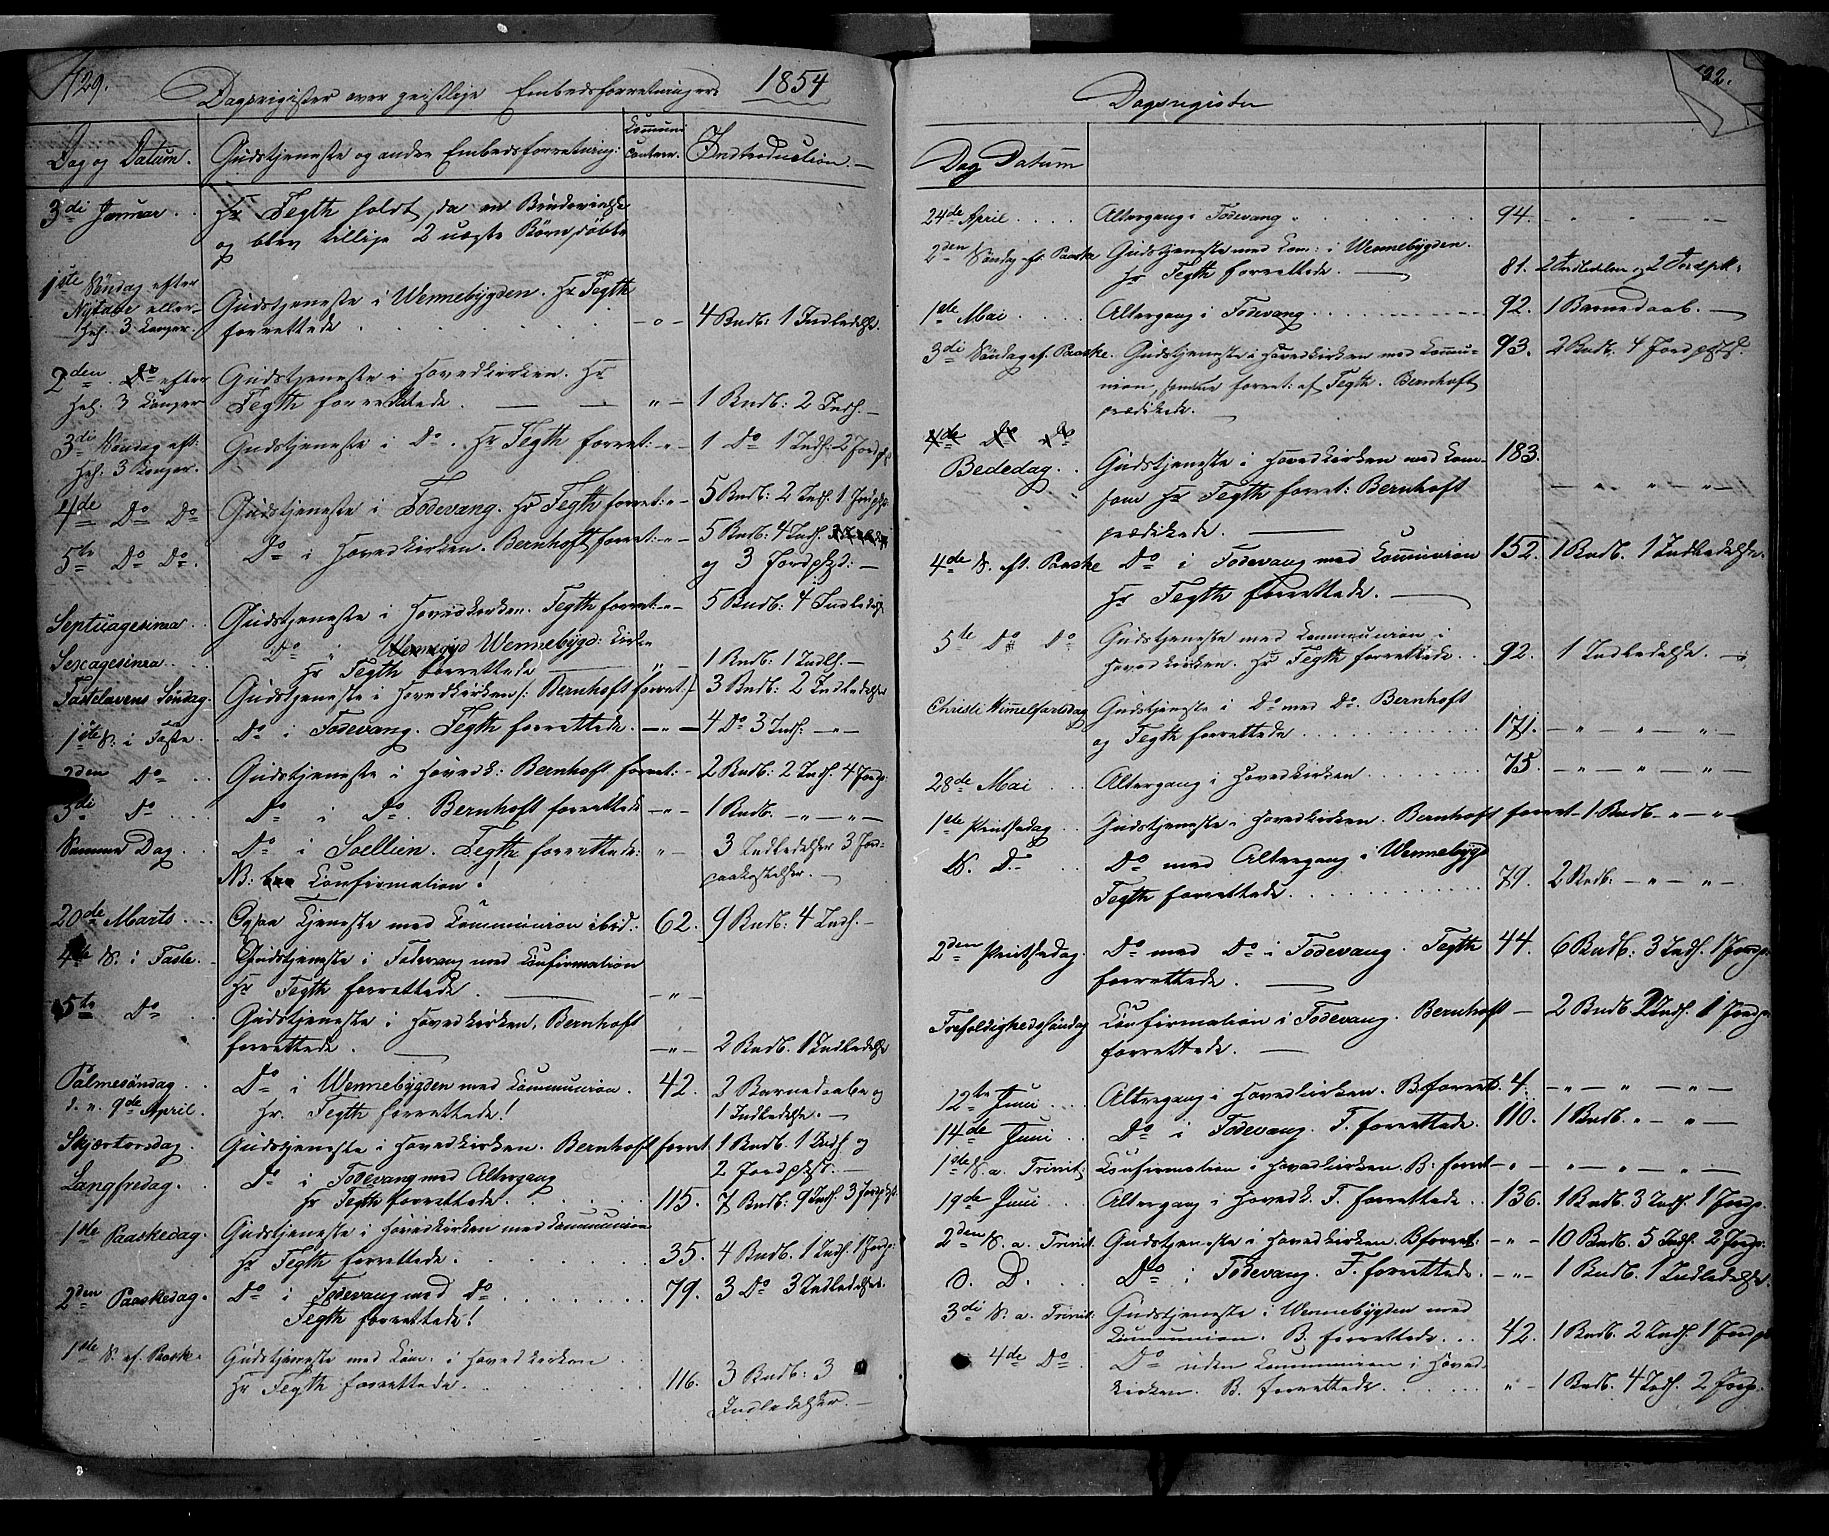 429.
Dagsregister over geistlige Embedsforretninger 1854
Dag og Datum. Gudstjeneste og andre Embedsforretning: Communicanter. Introduction.
3di Januar . . Hr Tegth holdt, da en Brudevielse
og blev tillige 2 uægte Børn døbte
1ste Søndag efter
Nytaar eller
Hel. 3 Konger. Gudstjeneste i Wennebygden. Hr Tegth
forrettede . . . . – o – 4 Bndb: 1 Indledelse.
2den Do efter
Hel. 3 Konger Gudstjeneste i Hovedkirken. Hr
Tegth forrettede . — — " – 1 Bndb: 2 Indl. –
3di Søndag eft:
Hel. 3 Konger. Gudstjeneste i Do. Hr Tegth forret: " – 1 Do 1 Indl: 2 Jordpk
4de Do Do Gudstjeneste i Fodevang. Hr Tegth forret: " – 5 Bndb: 2 Indl. 1 Jordpk
5te Do Do. Do i Hovedkirken. Bernhoft forret: – " – 5 Bndb: 4 Indl.
og 3 Jordpkd: –
Septuagesima Gudstjeneste i Hovedkirken. Tegth forret: " – 5 Bndb: 4 Indledels
Sexagesima . . . Do " Wennebygd: Kirke
Hr Tegth forrettede — " – 1 Bndb: 1 Indl. –
Fastelavens Søndag. Gudstjeneste i Hovedkirken /: Bernhoft forret:/ 3 Bndb: 2 Indledelser
1ste S: i Faste . . Do i Fodevang. Tegth forrettede. – " – 4 Do 3 Indl. – " –
2den Do . . Gudstjeneste i Hovedk: Bernhoft forret: – 2 Bndb: 2 Indl. 4 Jordp
3di Do . . . Do i Do. Bernhoft forrettede – " – 1 Bndb. – " – " –
Samme Dag . . Do i Sollien. Tegth forrettede: " – 3 Indledelser 3 Jord-
NB: Confirmation! paakastelser. –
20de Marts . . . Ogsaa Tjeneste med Communion ibid: 62. 9 Bndb: 4 Indl. –
4de S: i Faste. – Gudstjeneste i Fodevang med Confirmation
Hr Tegth forrettede . — – " –
5te Do . . Gudstjeneste i Hovedkirken, Bernhoft
forrettede . — – " – 2 Bndb. 1 Indledelse
Palmesøndag . . Do i Wennebygden med Communion . 42. 2 Barnedaabe og
d. " 9de April. Hr. Tegth forrettede! 1 Indledelse. –
Skjærtorsdag. Gudstjeneste i Hovedkirken. Bernhoft forret 1 Bndb. 1 Indl. og
2 Jordpkst. –
Langfredag. . Do i Fodevang med Altergang
Hr Tegth forrettede . . . 115. 7 Bndb. 9 Indl. 3 Jordpkst.
1ste Paaskedag. Gudstjeneste i Hovedkirken med Communion
Hr Tegth forrettede . . . 35. 4 Bndb. 1 Indl. 1 Jordp:
2den Paaskedag. Do i Fodevang med Do . . . . 79. 3 Do 3 Indledelser.
Tegth forrettede!
1ste S. ef. Paaske. Gudstjeneste med Com: i Hovedkirken . .
Hr Tegth forrettede . . . . 116. 3 Bndb: 3
Indledelser. –
Dagsregister
Dag Datum
24de April . . . . Altergang i Fodevang . . . . 94. – " " " –
2den Søndag ef. Paaske Gudstjeneste med Com: i Wennebygden.
Hr Tegth forrettede . — 81. 2 Indledelser og 2 Jordpk.
1ste Mai . . . . Altergang i Fodevang . . . . 92. 1 Barnedaab. –
3di Søndag ef. Paaske. Gudstjeneste i Hovedkirken med Commu- 93. 2 Bndb. 4 Jordpkst.
nion, samme forret: af Tegth. Bernhoft
prædikede. –
4de Do Do
Bededag . . Gudstjeneste i Hovedkirken med Com- 183.
Hr Tegth forret: Bernhoft – " " " –
prædikede. —
4de S. ef. Paaske Do i Fodevang med Communion 152. 1 Bndb. 1 Indledelse.
Hr Tegth forrettede. —
5te Do Do Gudstjeneste med Communion i
Hovedkirken. Hr Tegth forrettede. . 92. 1 Indledelse. –
Christi Himmelfartsdag Gudstjeneste i Do med Do. Bernhoft
og Tegth forrettede . . . . 171. – " – " – " –
28de Mai . . . Altergang i Hovedkirken . . . . 75. – " – " – " –
1ste Pintsedag . . Gudstjeneste i Hovedkirken. Bernhoft forret – 1 Bndb – " – " –
S. D. . . Do med Altergang i Wennebygd
Tegth forrettede . . . . 79. 2 Bndb. – " – " –
2den Pintsedag. Do med Do i Fodevang. Tegth 44. 6 Bndb: 3 Indl. 1 Jordp.
forrettede. —
Trefoldighedssøndag Confirmation i Fodevang. Bernhoft – 2 Bndb. 2 Indl. 1 Jordp.
forrettede. —
12te Juni . . . Altergang i Hovedkirken. B forret. 4. – " – " – " –
14de Juni . . Do i Fodevang. T. forrettede. 110. 1 Bndb. " – " –
1ste S. a. Trinit: Confirmation i Hovedkirken. B: forret – " – " – " – " –
19de Juni . . Altergang i Hovedk. T. forrettede . . 136. 1 Bndb. 3 Indl. 1 Jordp.
2den S. a. Trinit. Gudstjeneste i Hovedkirken. B forret: – " – 10 Bndb. 5 Indl. 2 Jordp.
S. D. . . Do i Fodevang. T. forrettede. – " – 1 Bndb. 1 Indledelse
3di S. a. Trinit: Gudstjeneste i Wennebygden med
Communion. B. forrettede. . . 42. 1 Bndb. 2 Indl. 1 Jordp
4de Do. . . Do uden Communion i Hoved-
kirken. B. forrettede . . . . " – 1 Bndb. 4 Indl. 2 Jordp.